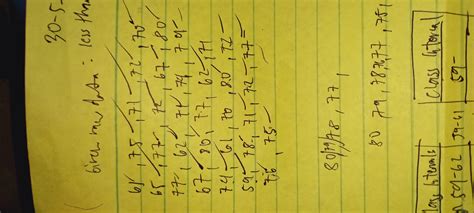 30-5-
Given raw data: less than
65, 75, 71, 72, 70
65, 77, 72, 67, 80
77, 62, 74, 74, 79
67, 80, 77, 62, 71
74, 61, 70, 80, 72
59, 78, 71, 72, 77
76, 75
78, 77,
80 79, 78, 77, 75,
Class Interval
59-
59-62 59-61